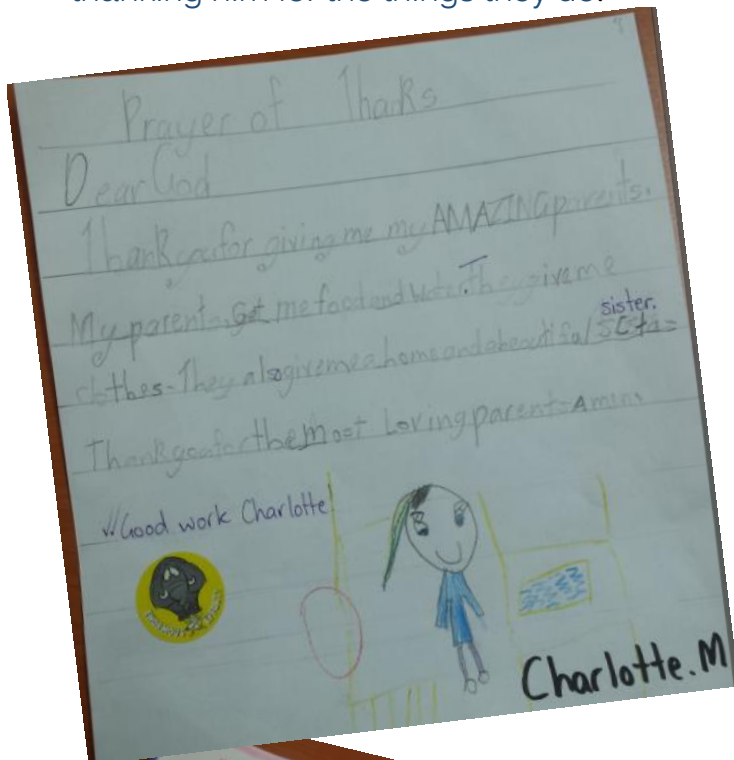 thanking him for the things they do.
Prayer of Thanks
Dear God
Thank you for giving me my AMAZING parents.
My parents Get me food and water. They give me
sister.
clothes. They also give me a home and a beautiful
Thank you for the most Loving parents Amen.
Good work Charlotte
Charlotte.M